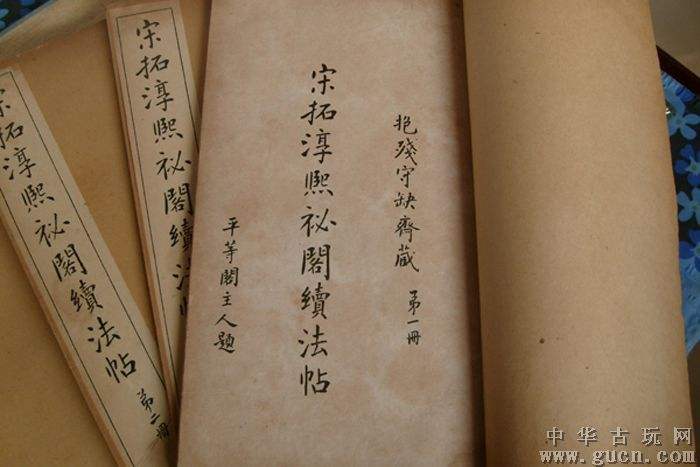 抱殘守缺齋藏 第一冊
宋拓淳熙祕閣續法帖
平等閣主人題
宋拓淳熙祕閣續法
宋拓淳熙祕閣續法帖 第二冊
中华古玩网
www.gucn.com